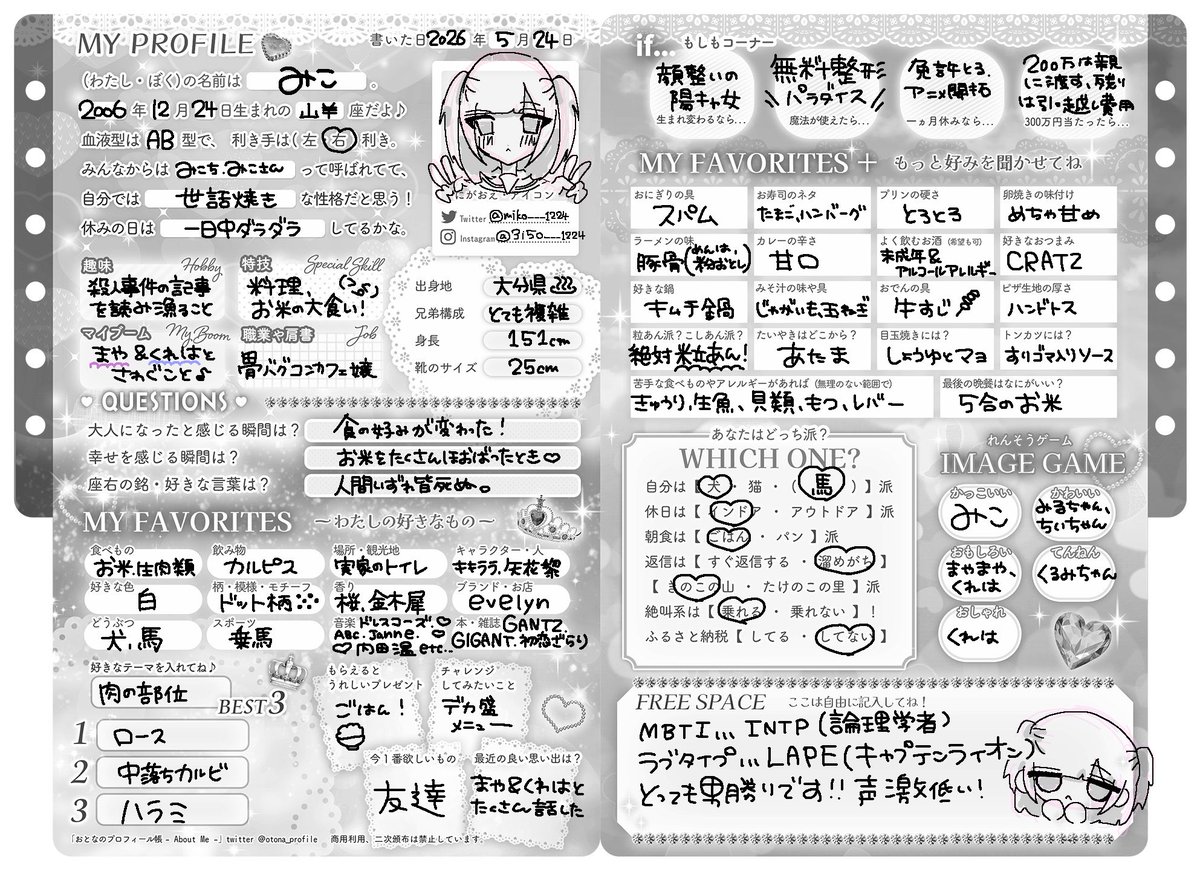 MY PROFILE
書いた日2026年5月24日
(わたし・ぼく)の名前は みこ 。
2006年12月24日生まれの 山羊 座だよ♪
血液型は AB 型で、 利き手は(左・右)利き。
みんなからは みこち、みこさん って呼ばれてて、
自分では 世話焼き な性格だと思う!
休みの日は 一日中ダラダラ してるかな。
にがおえ・アイコン
Twitter @miko___1224
Instagram @3i5o___1224
趣味 Hobby
殺人事件の記事
を読み漁ること
特技 Special Skill
料理、
お米の大食い!
マイブーム My Boom
まや&くれはと
さわぐこと♪
職業や肩書 Job
胃バグコンカフェ嬢
出身地 大分県
兄弟構成 とても複雑
身長 151cm
靴のサイズ 25cm
QUESTIONS
大人になったと感じる瞬間は? 食の好みが変わった!
幸せを感じる瞬間は? お米をたくさんほおばったとき♡
座右の銘・好きな言葉は? 人間いずれ皆死ぬ。
MY FAVORITES ~わたしの好きなもの~
食べもの お米、住肉類
飲み物 カルピス
場所・観光地 実家のトイレ
キャラクター・人 キキララ、矢花黎
好きな色 白
柄・模様・モチーフ ドット柄
香り 桜、金木犀
ブランド・お店 evelyn
どうぶつ 犬、馬
スポーツ 乗馬
音楽 ドレスコーズ♡
ABC. Janne.
♡内田温 etc..
本・雑誌 GANTZ、
GIGANT、初恋ざらり
好きなテーマを入れてね♪
肉の部位
BEST 3
1 ロース
2 中落ちカルビ
3 ハラミ
もらえると
うれしいプレゼント
ごはん!
チャレンジ
してみたいこと
デカ盛
メニュー
今1番欲しいもの
友達
最近の良い思い出は?
まや&くれはと
たくさん話した
「おとなのプロフィール帳 - About Me -」twitter @otona_profile 商用利用、二次頒布は禁止しています。
if... もしもコーナー
顔整いの
陽キャ女
生まれ変わるなら…
無料整形
パラダイス
魔法が使えたら…
免許とる、
アニメ開拓
一ヵ月休みなら…
200万は親
に渡す、残り
は引っ越し費用
300万円当たったら…
MY FAVORITES + もっと好みを聞かせてね
おにぎりの具 スパム
お寿司のネタ たまご、ハンバーグ
プリンの硬さ とろとろ
卵焼きの味付け めちゃ甘め
ラーメンの味 豚骨(めんは、粉おとし)
カレーの辛さ 甘口
よく飲むお酒 (希望も可) 未成年&アルコールアレルギー
好きなおつまみ CRATZ
好きな鍋 キムチ鍋
みそ汁の味や具 じゃがいも、玉ねぎ
おでんの具 牛すじ
ピザ生地の厚さ ハンドトス
粒あん派?こしあん派? 絶対粒あん!
たいやきはどこから? あたま
目玉焼きには? しょうゆとマヨ
トンカツには? すりゴマ入りソース
苦手な食べものやアレルギーがあれば (無理のない範囲で)
きゅうり、生魚、貝類、もつ、レバー
最後の晩餐はなにがいい?
5合のお米
あなたはどっち派?
WHICH ONE?
自分は【 犬 ・ 猫 ・ ( 馬 ) 】派
休日は【 インドア ・ アウトドア 】派
朝食は【 ごはん ・ パン 】派
返信は【 すぐ返信する ・ 溜めがち 】
【 きのこの山 ・ たけのこの里 】派
絶叫系は【 乗れる ・ 乗れない 】!
ふるさと納税【 してる ・ してない 】
れんそうゲーム
IMAGE GAME
かっこいい みこ
かわいい みるちゃん、ちぃちゃん
おもしろい まやまや、くれは
てんねん くるみちゃん
おしゃれ くれは
FREE SPACE ここは自由に記入してね!
MBTI... INTP (論理学者)
ラブタイプ... LAPE(キャプテンライオン)
とっても男勝りです!! 声激低い!